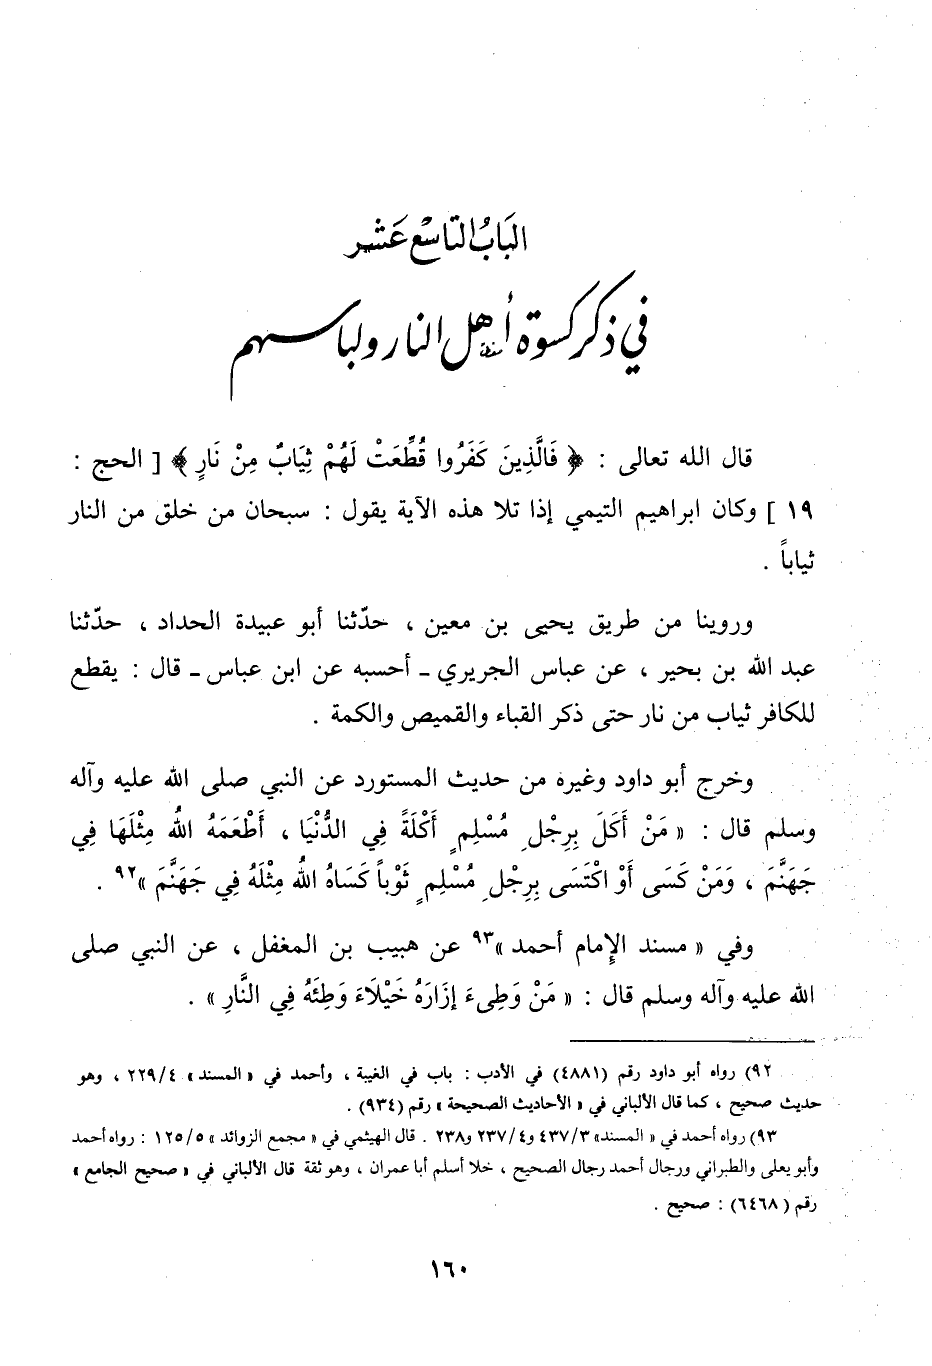 الباب التاسع عشر
في ذكر كسوة أهل النار ولباسهم
قال الله تعالى : ﴿ فَالَّذِينَ كَفَرُوا قُطِّعَتْ لَهُمْ ثِيَابٌ مِنْ نَارٍ ﴾ [ الحج :
١٩ ] وكان ابراهيم التيمي إذا تلا هذه الآية يقول : سبحان من خلق من النار
ثياباً .
وروينا من طريق يحيى بن معين ، حدّثنا أبو عبيدة الحداد ، حدّثنا
عبد الله بن بحير ، عن عباس الجريري ـ أحسبه عن ابن عباس ـ قال : يقطع
للكافر ثياب من نار حتى ذكر القباء والقميص والكمة .
وخرج أبو داود وغيره من حديث المستورد عن النبي صلى الله عليه وآله
وسلم قال : « مَنْ أَكَلَ بِرِجْلِ مُسْلِمٍ أَكْلَةً فِي الدُّنْيَا ، أَطْعَمَهُ اللهُ مِثْلَهَا فِي
جَهَنَّمَ ، وَمَنْ كَسَى أَوْ اكْتَسَى بِرِجْلِ مُسْلِمٍ ثَوْباً كَسَاهُ اللهُ مِثْلَهُ فِي جَهَنَّمَ »٩٢ .
وفي « مسند الإمام أحمد »٩٣ عن هبيب بن المغفل ، عن النبي صلى
الله عليه وآله وسلم قال : « مَنْ وَطِىءَ إزَارَهُ خَيْلَاءَ وَطِئَهُ فِي النَّارِ » .
٩٢) رواه أبو داود رقم (٤٨٨١) في الأدب : باب في الغيبة ، وأحمد في « المسند » ٢٢٩/٤ ، وهو
حديث صحيح ، كما قال الألباني في « الأحاديث الصحيحة » رقم (٩٣٤) .
٩٣) رواه أحمد في « المسند» ٤٣٧/٣ و٢٣٧/٤ و٢٣٨ . قال الهيثمي في « مجمع الزوائد » ١٢٥/٥ : رواه أحمد
وأبو يعلى والطبراني ورجال أحمد رجال الصحيح ، خلا أسلم أبا عمران ، وهو ثقة قال الألباني في « صحيح الجامع »
رقم (٦٤٦٨) : صحيح .
١٦٠